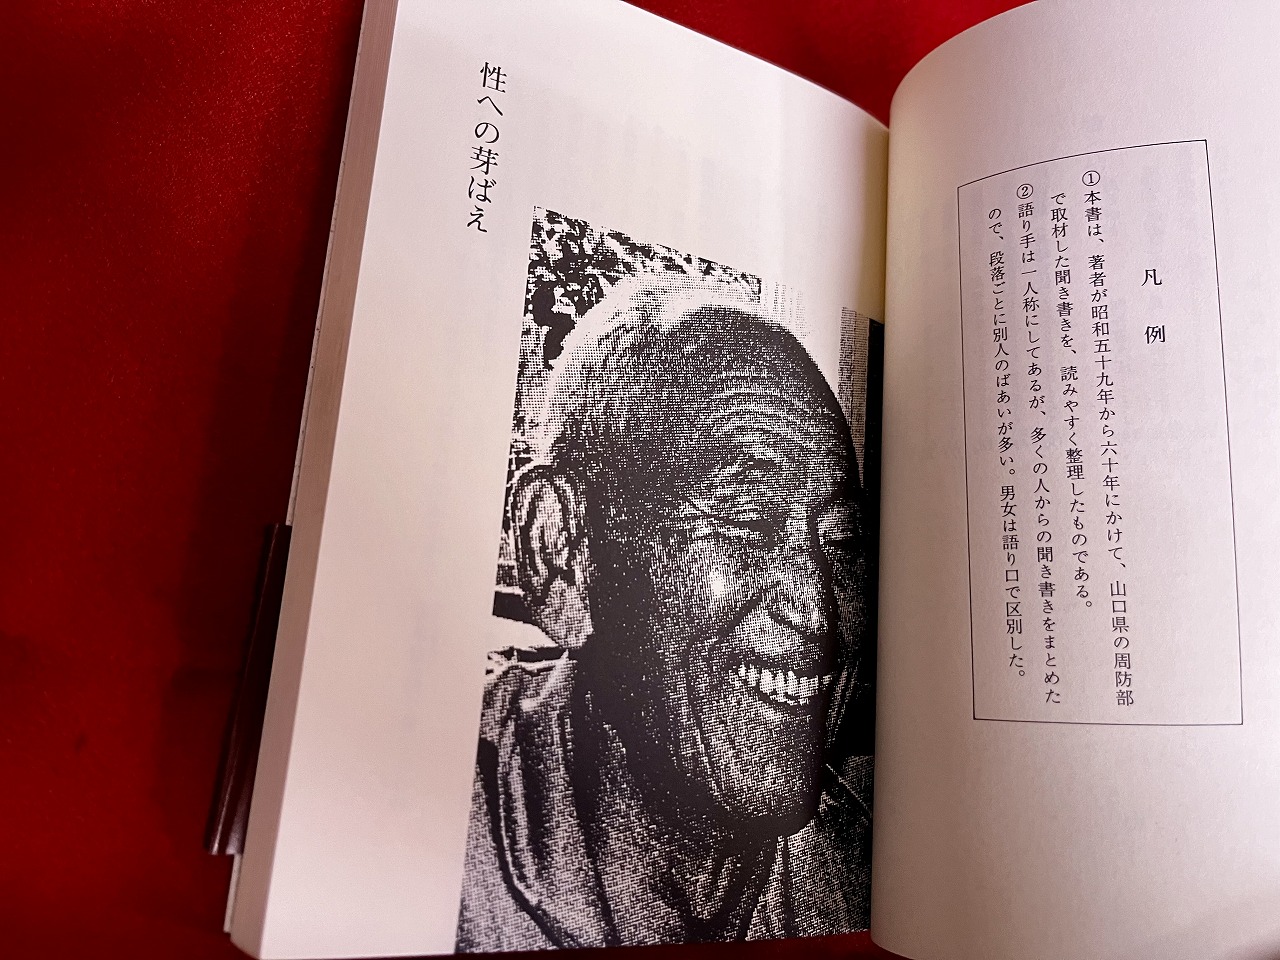 凡例
①本書は、著者が昭和五十九年から六十年にかけて、山口県の周防部
で取材した聞き書きを、読みやすく整理したものである。
②語り手は一人称にしてあるが、多くの人からの聞き書きをまとめた
ので、段落ごとに別人のばあいが多い。男女は語り口で区別した。
性への芽ばえ